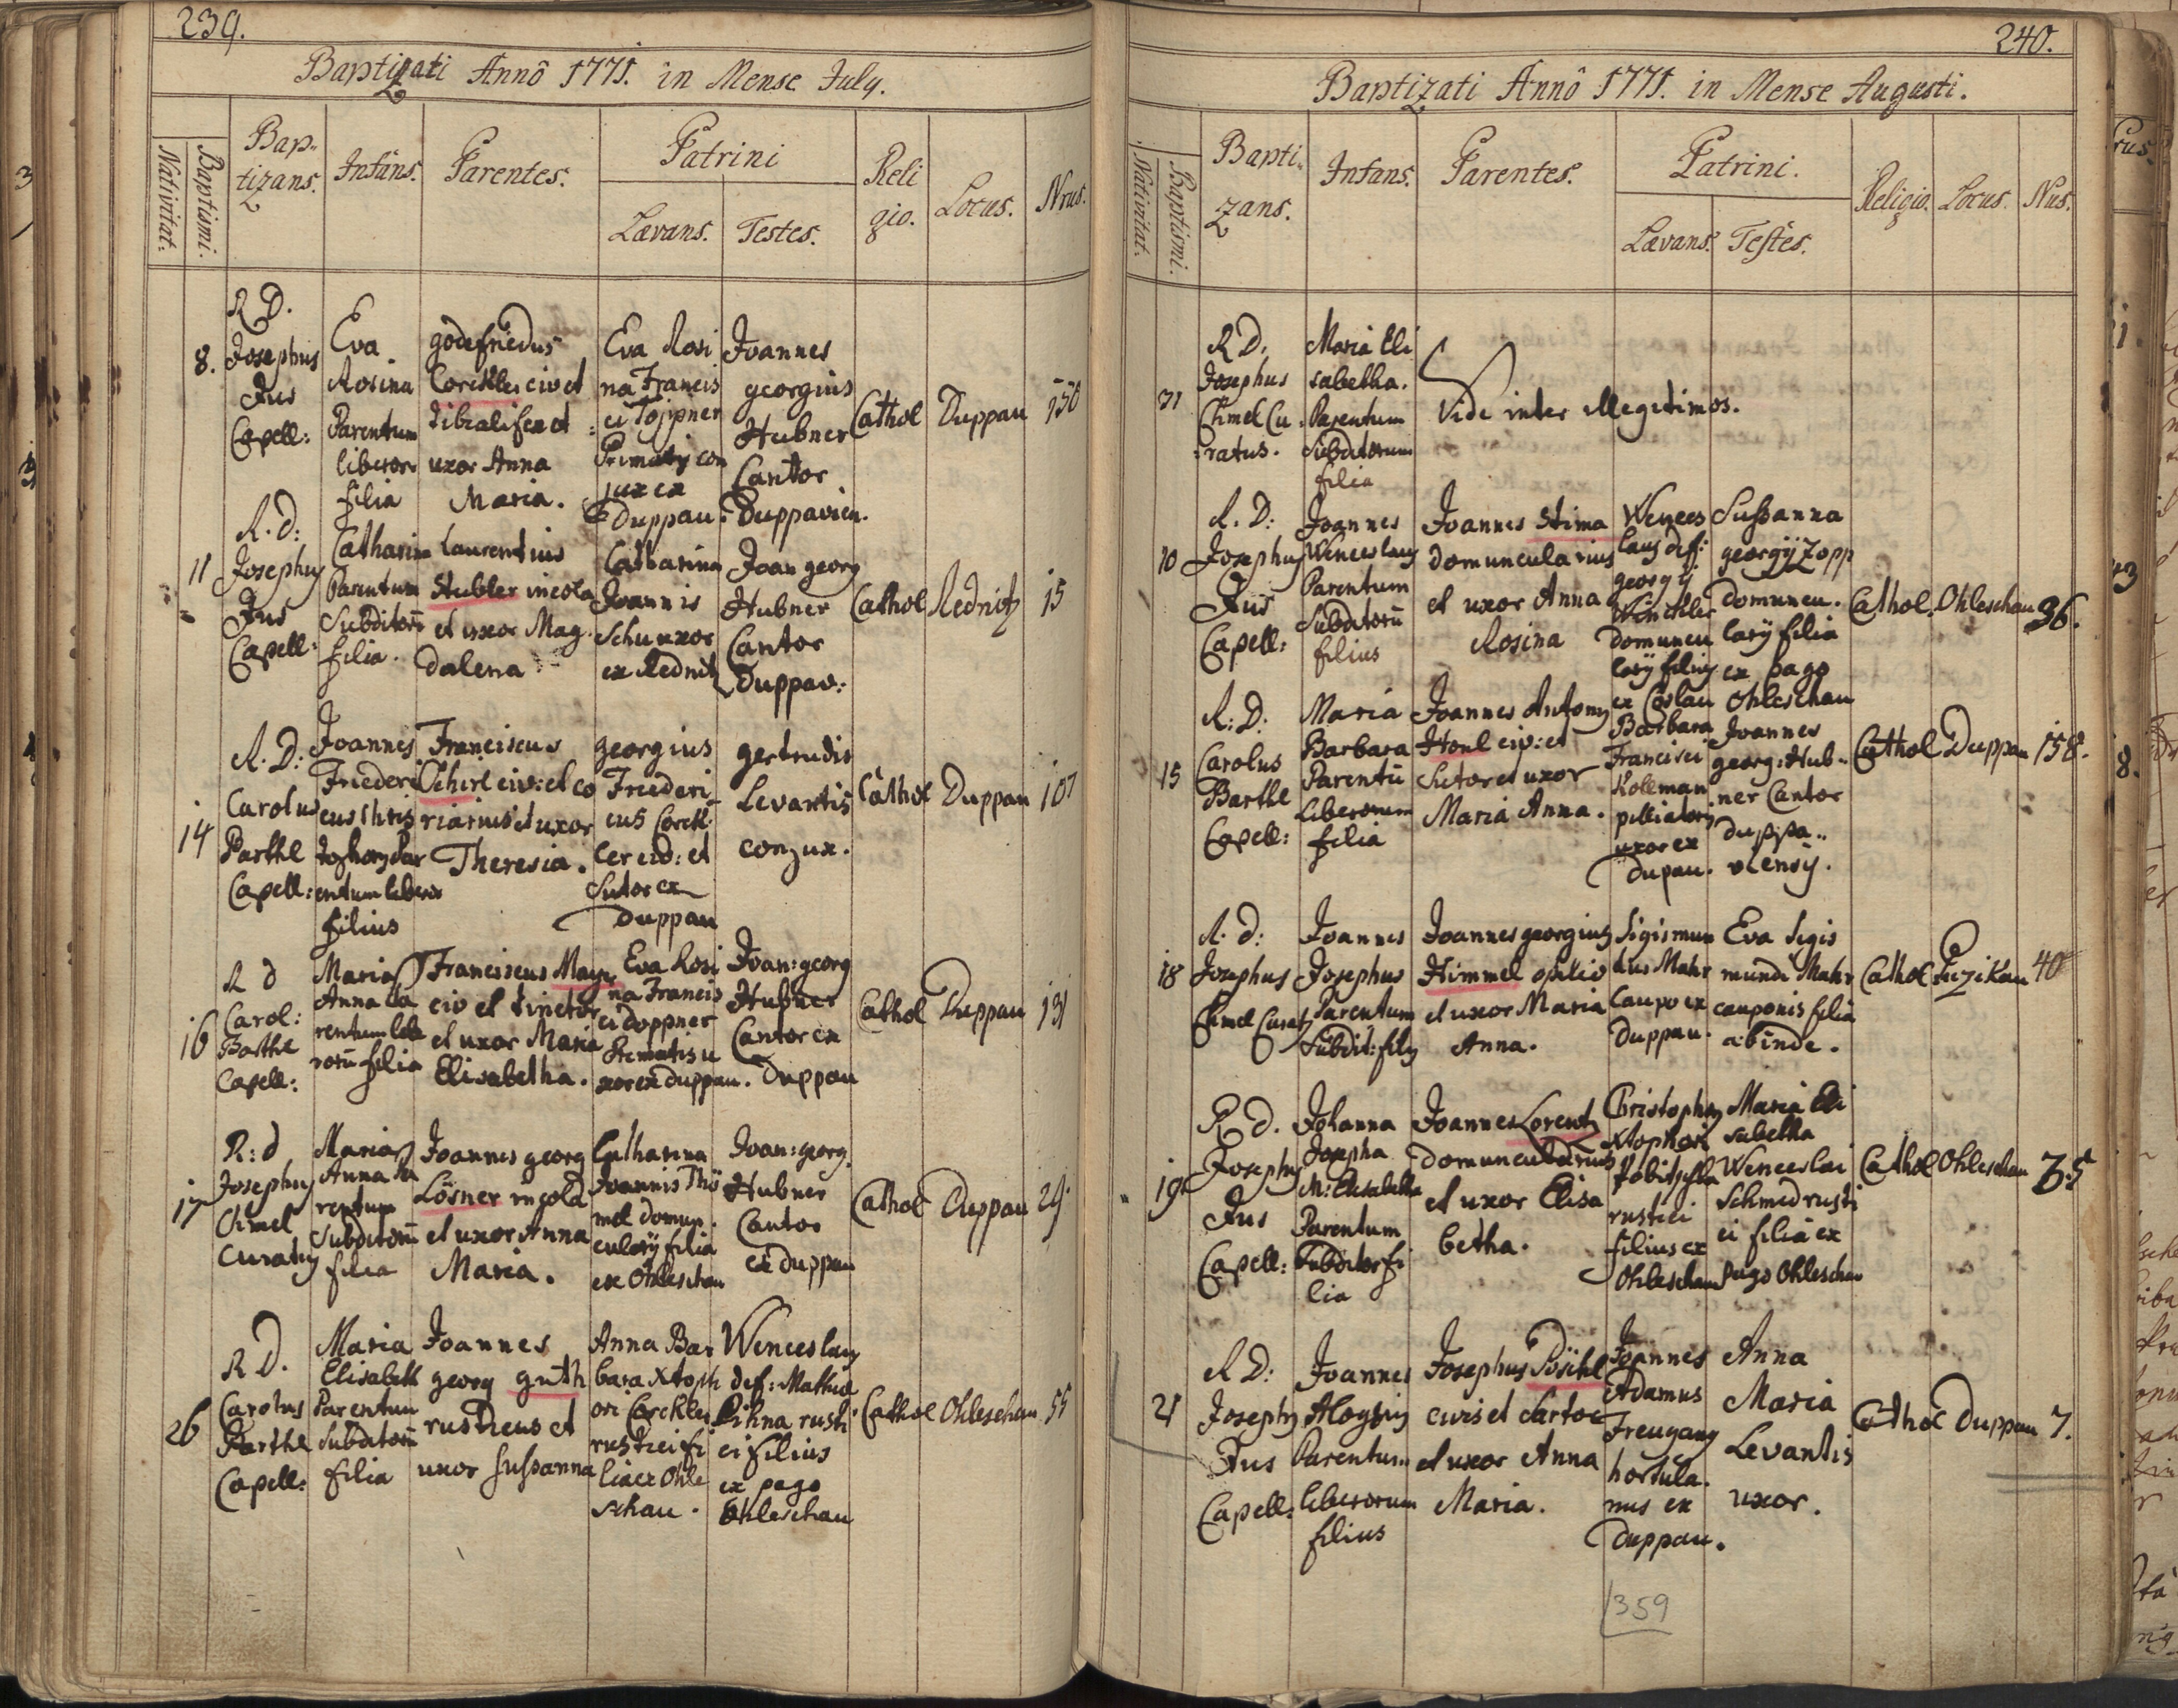 239.
Baptizati Annô 1771. in Mense July.
Nativitat:
Baptismi.
Bap-
tizans.
Infans.
Parentes.
Patrini
Lævans.
Testes.
Reli
gio.
Locus.
Nrus.
8.
R D.
Josephus
Fus
Capell:
Eva
Rosina
Parentum
liberor
filia
godefriedus
civ et
et
uxor Anna
Maria.
Eva Rosi
na Francis
ci Toppner
con
jux ex
Duppau.
Joannes
georgius
Hubner
Cantor
Duppavien.
Cathol
Duppau
150
11
R. d:
Josephus
Fus
Capell:
Catharina
Parentum
Subditorū
filia.
Laurentius
Stubler incola
et uxor Mag
dalena
Catharina
Joannis
Schu uxor
ex Rednitz
Joan georg
Hubner
Cantor
Duppav:
Cathol
Rednitz
15
14
R. D:
Carolus
Barthl
Capell:
Joannes
Friederi
cus
Par
entum liberor
filius
Franciscus
civ: et co
riarius et uxor
Theresia.
georgius
Friederi
cus
civ: et
Sutor ex
Duppau
gertrudis
Levantis
conjux.
Cathol
Duppau
107
16
R d
Carol:
Barthl
Capell:
Maria
Anna Pa
rentum libe
rorū filia
Franciscus
civ et tinctor
et uxor Maria
Elisabetha.
Eva Rosi
na Francis
ci doppner
u
xor ex duppau.
Joan: georg
Hubner
Cantor ex
Duppau
Cathol
Duppau
131
17
R: d
Josephus
Chmel
Curatus
Maria
Anna Pa
rentum
Subditorū
filia
Joannes georg
Lösner incola
et uxor Anna
Maria.
Catharina
Joannis Thü
mel domun
culary filia
ex Ohleschau
Joan: georg.
Hubner
Cantor
ex duppau
Cathol
Duppau
29.
26
R D.
Carolus
Barthl
Capell:
Maria
Elisabeth
Parentum
Subditorū
filia
Joannes
georg guth
rusticus et
uxor Sussanna
Anna Bar
bara Xtoph
ori
rustici fi
lia ex Ohle
schau.
Wenceslaus
def: Mathiæ
rusti
ci filius
ex pago
Ohleschau
Cathol
Ohleschau
55
240.
Baptizati Annô 1771. in Mense Augusti.
Nativitat:
Baptismi.
Bapti-
zans.
Infans.
Parentes.
Patrini.
Lævans.
Testes.
Religio.
Locus.
Nus.
31
R D.
Josephus
Chmel Cu
ratus.
Maria Eli
sabetha.
Parentum
Subditorum
filia
Vide inter illegitimos.
10
R. D:
Josephus
Fus
Capell:
Joannes
Wenceslaus
Parentum
Subditorū
filius
Joannes Stima
domuncularius
et uxor Anna
Rosina
Wences
laus def:
georgij
Winckler
domuncu
lary filius
ex Coslau
Sussanna
georgij Zopp
domuncu.
lary filia
ex pago
Ohleschau
Cathol.
Ohleschau
36.
15
R: D:
Carolus
Barthl
Capell:
Maria
Barbara
Parentū
liberorum
filia
Joannes Antony
civ: et
Sutor et uxor
Maria Anna.
Barbara
Francisci
Kolleman
uxor ex
Dupau.
Joannes
georg: Hub-
ner Cantor
duppa-
viensis.
Cathol
Duppau
158.
18
R. d:
Josephus
Chmel Curatus
Joannes
Josephus
Parentum
Subdit: filius
Joannes georgius
Himmel opilio
et uxor Maria
Anna.
Sigismun
dus Mahr
Caupo ex
Duppau.
Eva Sigis
mundi Mahr
cauponis filia
abinde.
Cathol
40
19.
R d.
Josephus
Fus
Capell:
Johanna
Josepha
M: Elisabetha
Parentum
Subditor fi
lia
Joannes Lorentz
domuncularius
et uxor Elisa
betha.
Christophus
Xtophori
rustici
filius ex
Ohleschau
Maria Eli
sabetha
Wenceslai
Schmed rusti
ci filia ex
pago Ohleschau
Cathol
Ohleschau
35
21
R D:
Josephus
Fus
Capell:
Joannes
Aloysius
Parentum
liberorum
filius
Josephus Pöschl
civis et Sartor
et uxor Anna
Maria.
Joannes
Adamus
Freygang
hortula
nus ex
Duppau.
Anna
Maria
Levantis
uxor.
Cathol
Duppau
7.
359